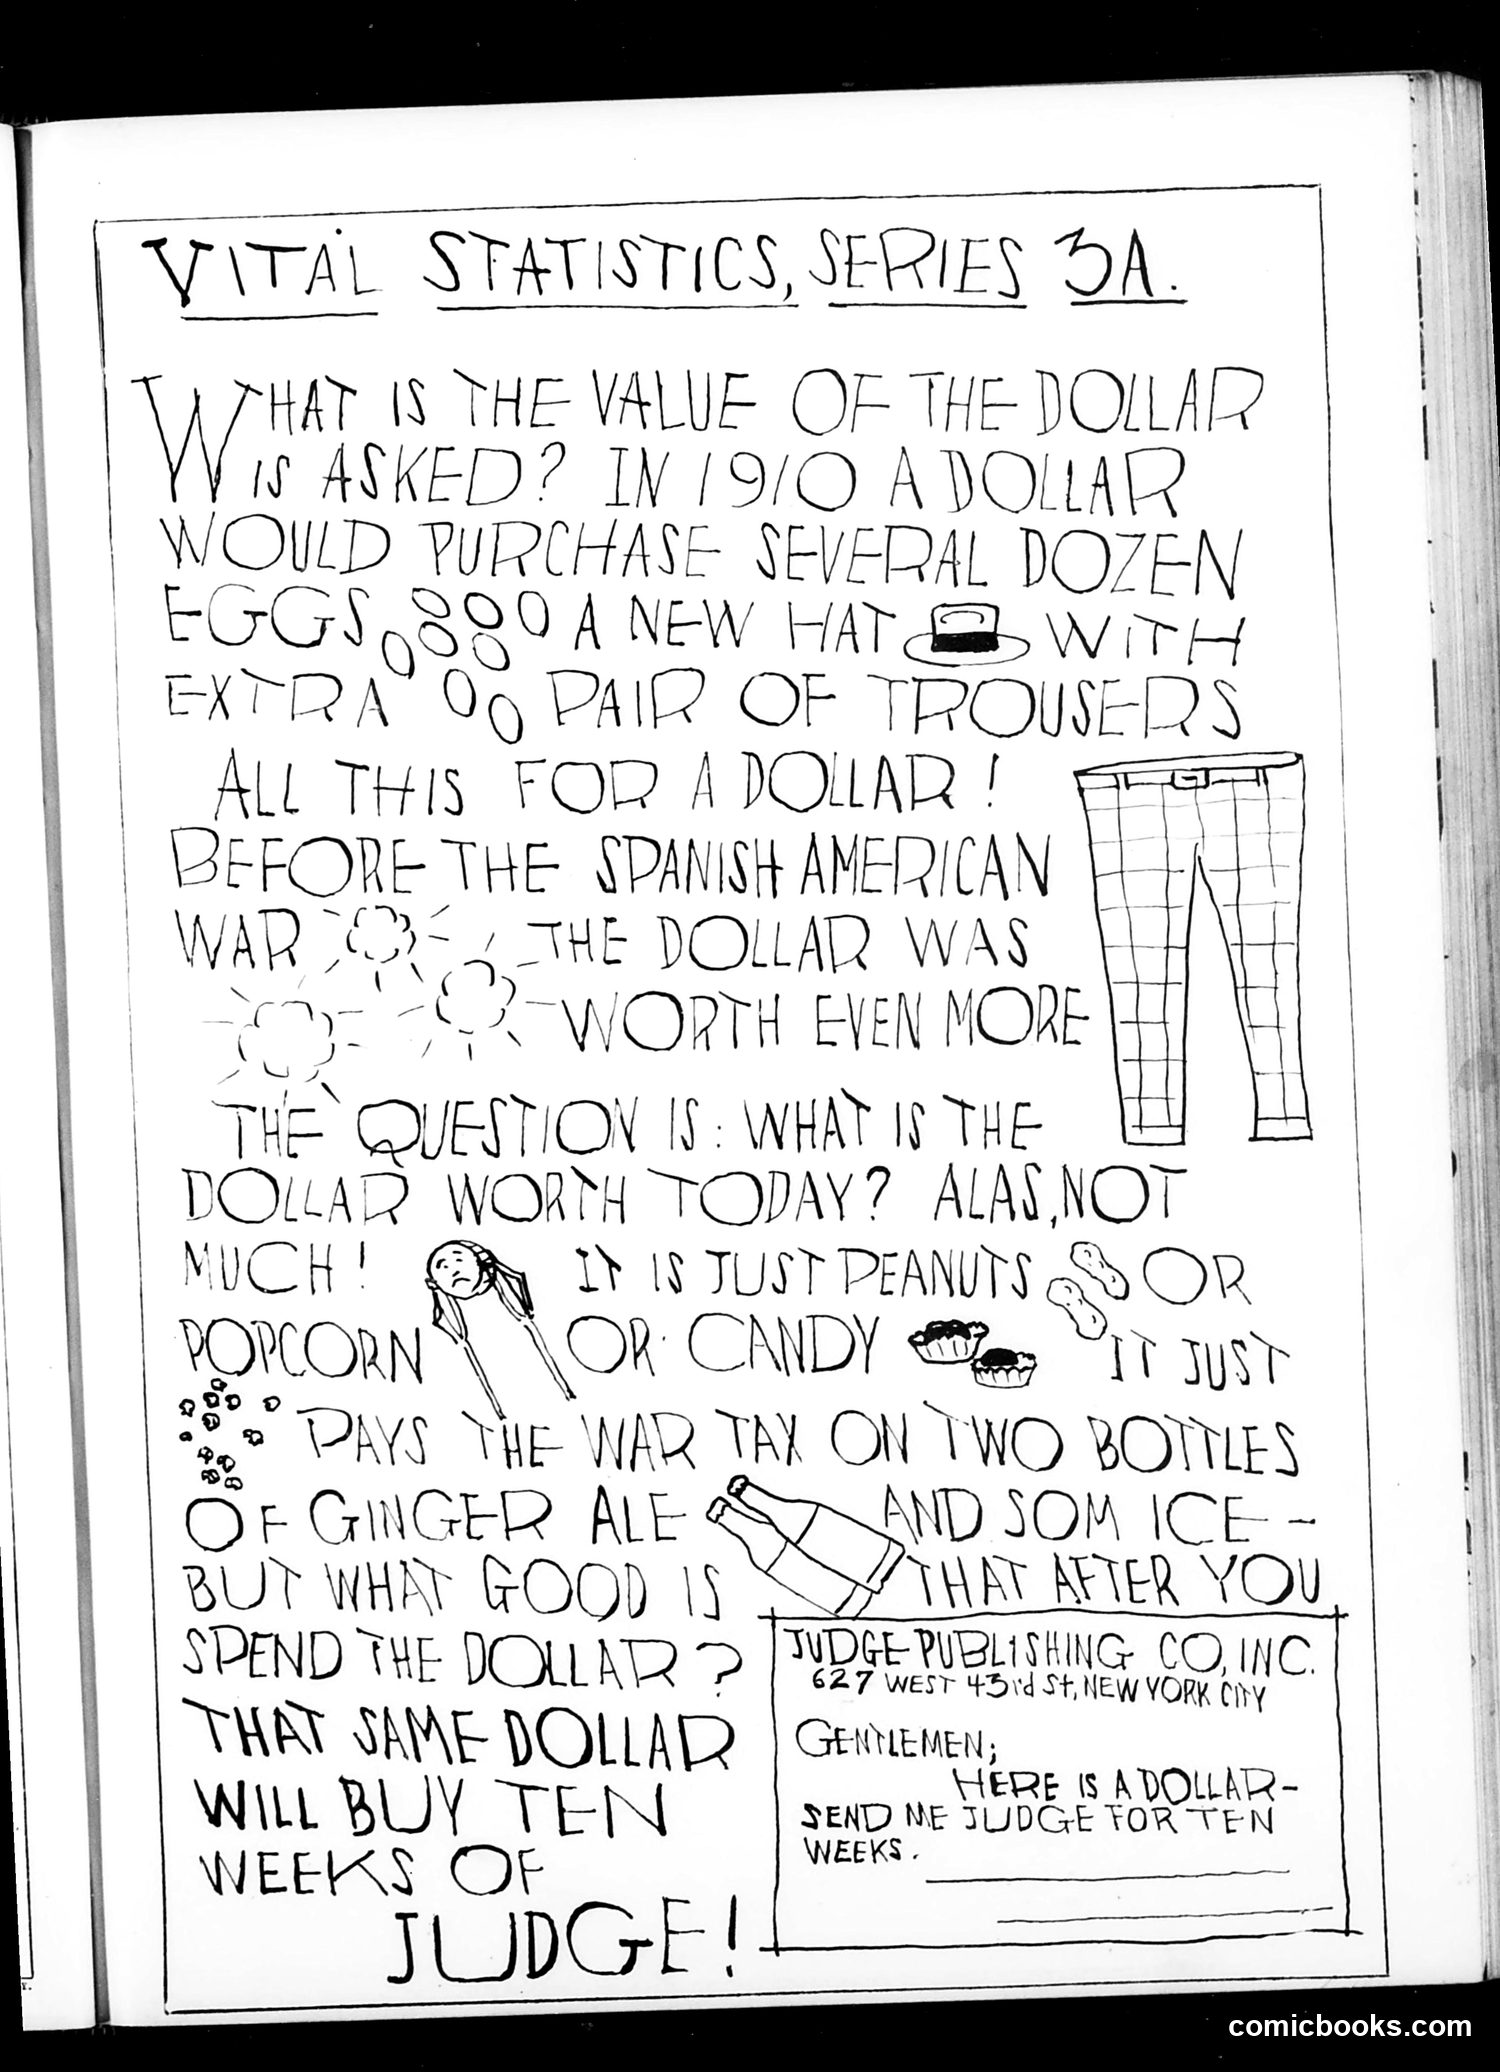 VITAL STATISTICS, SERIES 3A.
WHAT IS THE VALUE OF THE DOLLAR
IS ASKED? IN 1910 A DOLLAR
WOULD PURCHASE SEVERAL DOZEN
EGGS A NEW HAT WITH
EXTRA PAIR OF TROUSERS
ALL THIS FOR A DOLLAR!
BEFORE THE SPANISH AMERICAN
WAR THE DOLLAR WAS
WORTH EVEN MORE
THE QUESTION IS: WHAT IS THE
DOLLAR WORTH TODAY? ALAS, NOT
MUCH! IT IS JUST PEANUTS OR
POPCORN OR CANDY IT JUST
PAYS THE WAR TAX ON TWO BOTTLES
OF GINGER ALE AND SOM ICE-
BUT WHAT GOOD IS THAT AFTER YOU
SPEND THE DOLLAR?
THAT SAME DOLLAR
WILL BUY TEN
WEEKS OF
JUDGE!
JUDGE PUBLISHING CO, INC.
627 WEST 43rd St, NEW YORK CITY
GENTLEMEN;
HERE IS A DOLLAR-
SEND ME JUDGE FOR TEN
WEEKS.
comicbooks.com